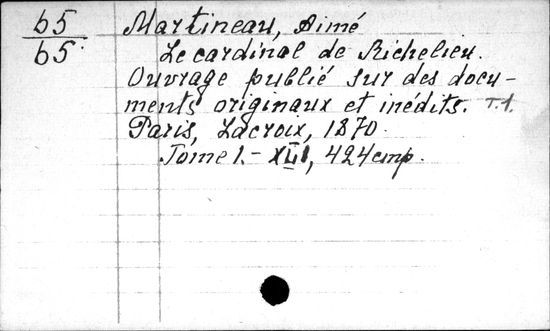 65
65
Martineau, Aimé
Le cardinal de Richelieu.
Ouvrage publié sur des docu-
ments originaux et inédits. T.1.
Paris, Lacroix, 1870.
Tome 1.- XIII, 424 cmp.